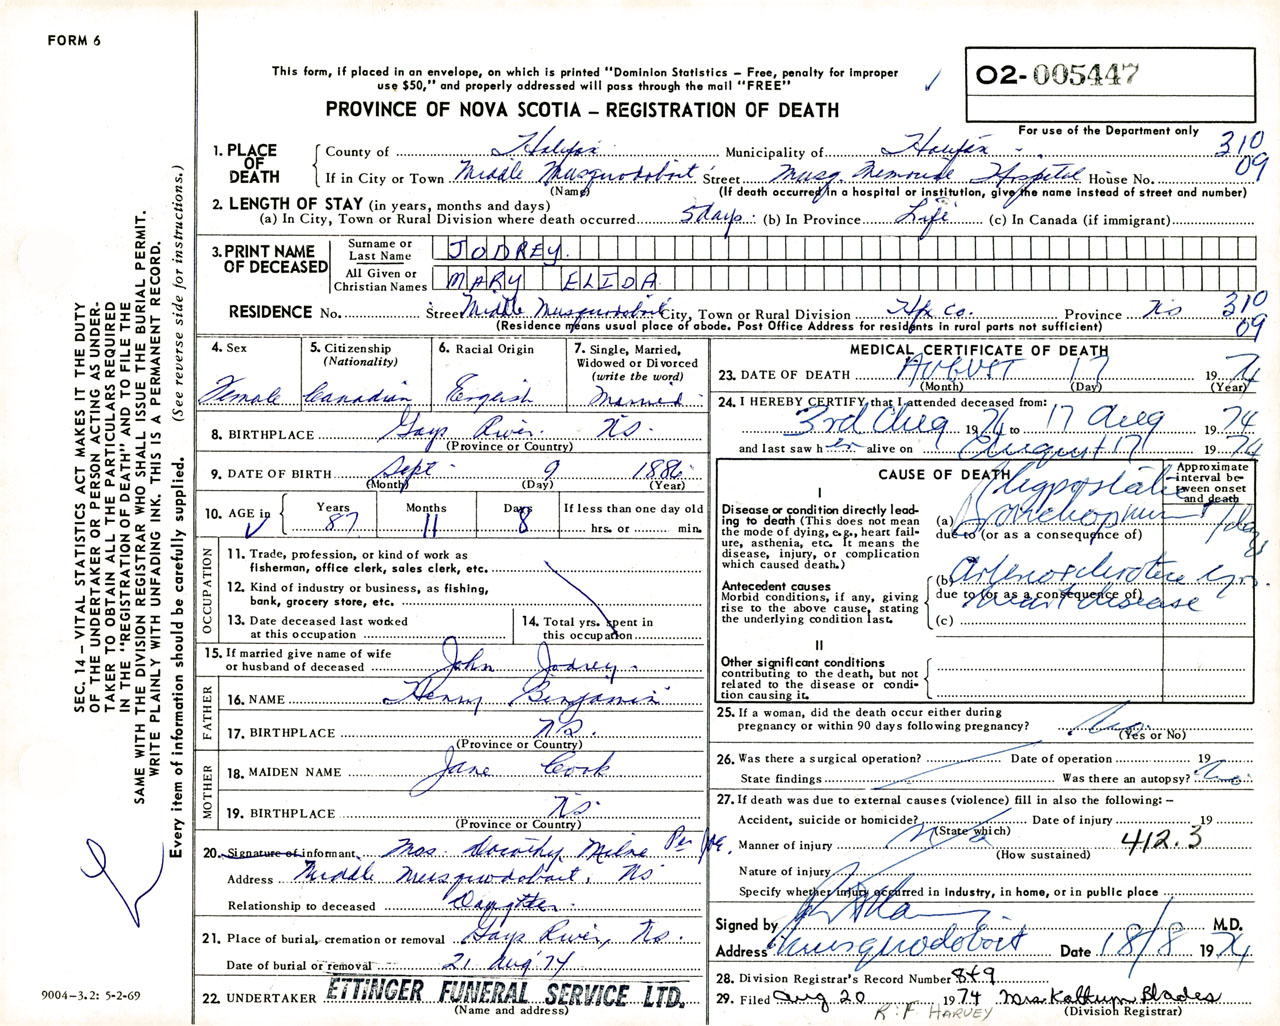 FORM 6
This form, if placed in an envelope, on which is printed "Dominion Statistics – Free, penalty for improper
use $50," and properly addressed will pass through the mail "FREE"
PROVINCE OF NOVA SCOTIA – REGISTRATION OF DEATH
02-005447
For use of the Department only
310
09
1. PLACE OF DEATH
County of Halifax Municipality of Halifax
If in City or Town Middle Musquodoboit Street Musq. Memorial Hospital House No.
(Name) (If death occurred in a hospital or institution, give the name instead of street and number)
2. LENGTH OF STAY (in years, months and days)
(a) In City, Town or Rural Division where death occurred 5 days (b) In Province Life (c) In Canada (if immigrant)
3. PRINT NAME OF DECEASED
Surname or Last Name JODREY
All Given or Christian Names MARY ELIDA
RESIDENCE No. Street Middle Musquodoboit City, Town or Rural Division Hfx Co. Province NS
(Residence means usual place of abode. Post Office Address for residents in rural parts not sufficient)
310
09
4. Sex
Female
5. Citizenship (Nationality)
Canadian
6. Racial Origin
English
7. Single, Married, Widowed or Divorced (write the word)
Married
8. BIRTHPLACE Gays River NS.
(Province or Country)
9. DATE OF BIRTH Sept 9 1886
(Month) (Day) (Year)
10. AGE in Years 87 Months 11 Days 8 If less than one day old hrs. or min.
OCCUPATION
11. Trade, profession, or kind of work as
fisherman, office clerk, sales clerk, etc.
12. Kind of industry or business, as fishing,
bank, grocery store, etc.
13. Date deceased last worked
at this occupation
14. Total yrs. spent in
this occupation
15. If married give name of wife
or husband of deceased John Jodrey
FATHER
16. NAME Henry Benjamin
17. BIRTHPLACE NS.
(Province or Country)
MOTHER
18. MAIDEN NAME Jane Cook
19. BIRTHPLACE NS
(Province or Country)
20. Signature of informant Mrs. Dorothy Milne Per
Address Middle Musquodoboit, NS
Relationship to deceased Daughter
21. Place of burial, cremation or removal Gays River, NS.
Date of burial or removal 21 Aug 74
22. UNDERTAKER ETTINGER FUNERAL SERVICE LTD.
(Name and address)
MEDICAL CERTIFICATE OF DEATH
23. DATE OF DEATH AUGUST 17 1974
(Month) (Day) (Year)
24. I HEREBY CERTIFY that I attended deceased from:
3rd Aug 1974 to 17 Aug 1974
and last saw her alive on August 17 1974
CAUSE OF DEATH
Approximate interval between onset and death
I
Disease or condition directly leading to death (This does not mean the mode of dying, e.g., heart failure, asthenia, etc. It means the disease, injury, or complication which caused death.)
(a) Hypostatic Bronchopneum 1 day
due to (or as a consequence of)
Antecedent causes
Morbid conditions, if any, giving rise to the above cause, stating the underlying condition last.
(b) Arteriosclerotic heart disease yrs.
due to (or as a consequence of)
(c)
II
Other significant conditions contributing to the death, but not related to the disease or condition causing it.
25. If a woman, did the death occur either during
pregnancy or within 90 days following pregnancy? No.
(Yes or No)
26. Was there a surgical operation? Date of operation 19
State findings Was there an autopsy? No
27. If death was due to external causes (violence) fill in also the following: –
Accident, suicide or homicide? Date of injury 19
(State which)
Manner of injury 412.3
(How sustained)
Nature of injury
Specify whether injury occurred in industry, in home, or in public place
Signed by M.D.
Address Musquodoboit Date 18/8 1974
28. Division Registrar's Record Number 849
29. Filed Aug 20 1974 Mrs Blades
K. F HARVEY (Division Registrar)
SEC. 14 – VITAL STATISTICS ACT MAKES IT THE DUTY
OF THE UNDERTAKER OR PERSON ACTING AS UNDER-
TAKER TO OBTAIN ALL THE PARTICULARS REQUIRED
IN THE "REGISTRATION OF DEATH" AND TO FILE THE
SAME WITH THE DIVISION REGISTRAR WHO SHALL ISSUE THE BURIAL PERMIT.
WRITE PLAINLY WITH UNFADING INK. THIS IS A PERMANENT RECORD.
Every item of information should be carefully supplied. (See reverse side for instructions.)
9004-3.2: 5-2-69